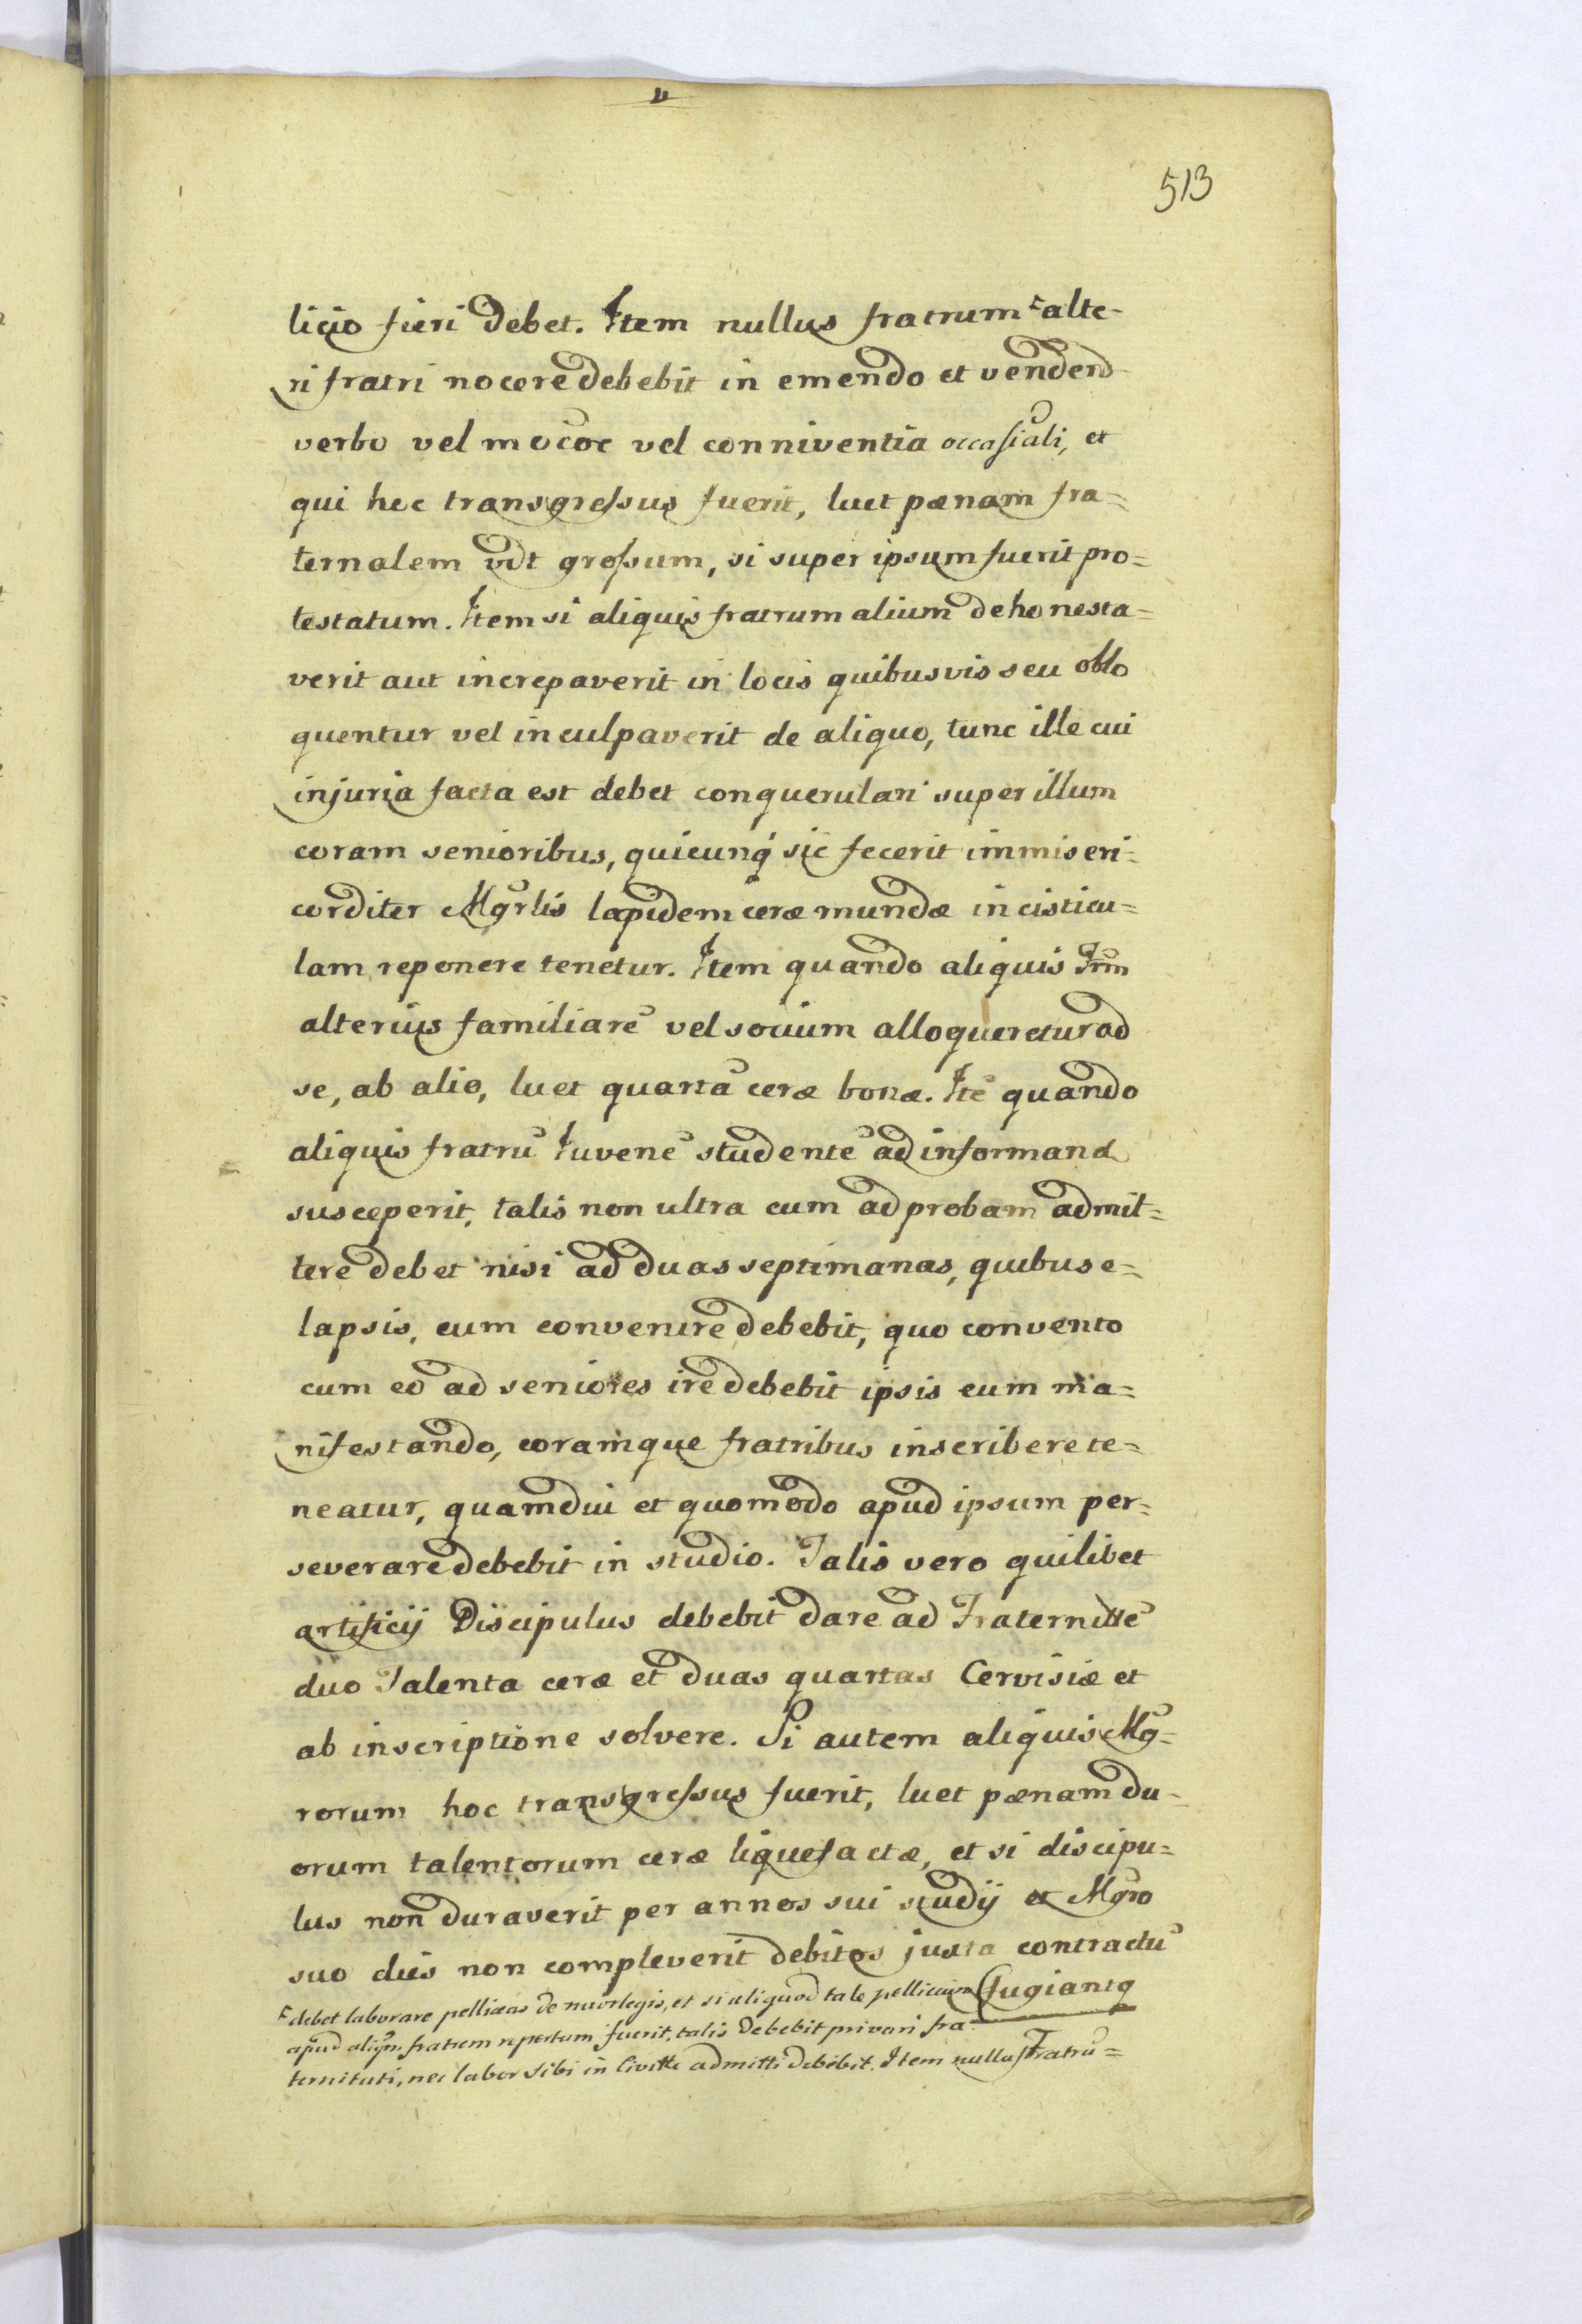 513
licio fieri debet. Item nullus fratrum alte-
ri fratri nocere debebit in emendo et vendend
verbo vel vel conniventia occasiali, et
qui hec transgressus fuerit, luet pænam fra=
ternalem vdt grossum, si super ipsum fuerit pro=
testatum. Item si aliquis fratrum alium dehonesta=
verit aut increpaverit in locis quibusvis seu oblo
quentur vel inculpaverit de aliquo, tunc ille cui
injuria facta est debet conquerulari super illum
coram senioribus, quicunq́ sic fecerit immiseri=
corditer Mgrlis lapidem ceræ mundæ in cisticu=
lam reponere tenetur. Item quando aliquis Frm
alterius familiarē vel socium alloqueretur ad
se, ab alio, luet quartā ceræ bonæ. Itē quando
aliquis fratrū Iuvenē studentē ad informand
susceperit, talis non ultra cum ad probam admit=
tere debet nisi ad duas septimanas, quibus e=
lapsis, eum convenire debebit, quo convento
cum eo ad seniores ire debebit ipsis eum ma=
nifestando, coramque fratribus inscribere te=
neatur, quamdiu et quomodo apud ipsum per=
severare debebit in studio. Talis vero quilibet
artificij Discipulus debebit dare ad Fraternittē
duo Talenta ceræ et duas quartas Cervisiæ et
ab inscriptione solvere. Si autem aliquis Mg=
rorum hoc transgressus fuerit, luet pænam du=
orum talentorum ceræ liquefactæ, et si discipu=
lus non duraverit per annos sui studij et Mgro
suo dies non compleverit debitos juxta contractū
fugiantq
debet laborare pelliceas de et si aliquod tale pellicium
apud aliqm fratrem repertum fuerit, talis debebit privari fra=
ternitati, nec labor sibi in Civitte admitti debebit. Item nullus Fratrū=